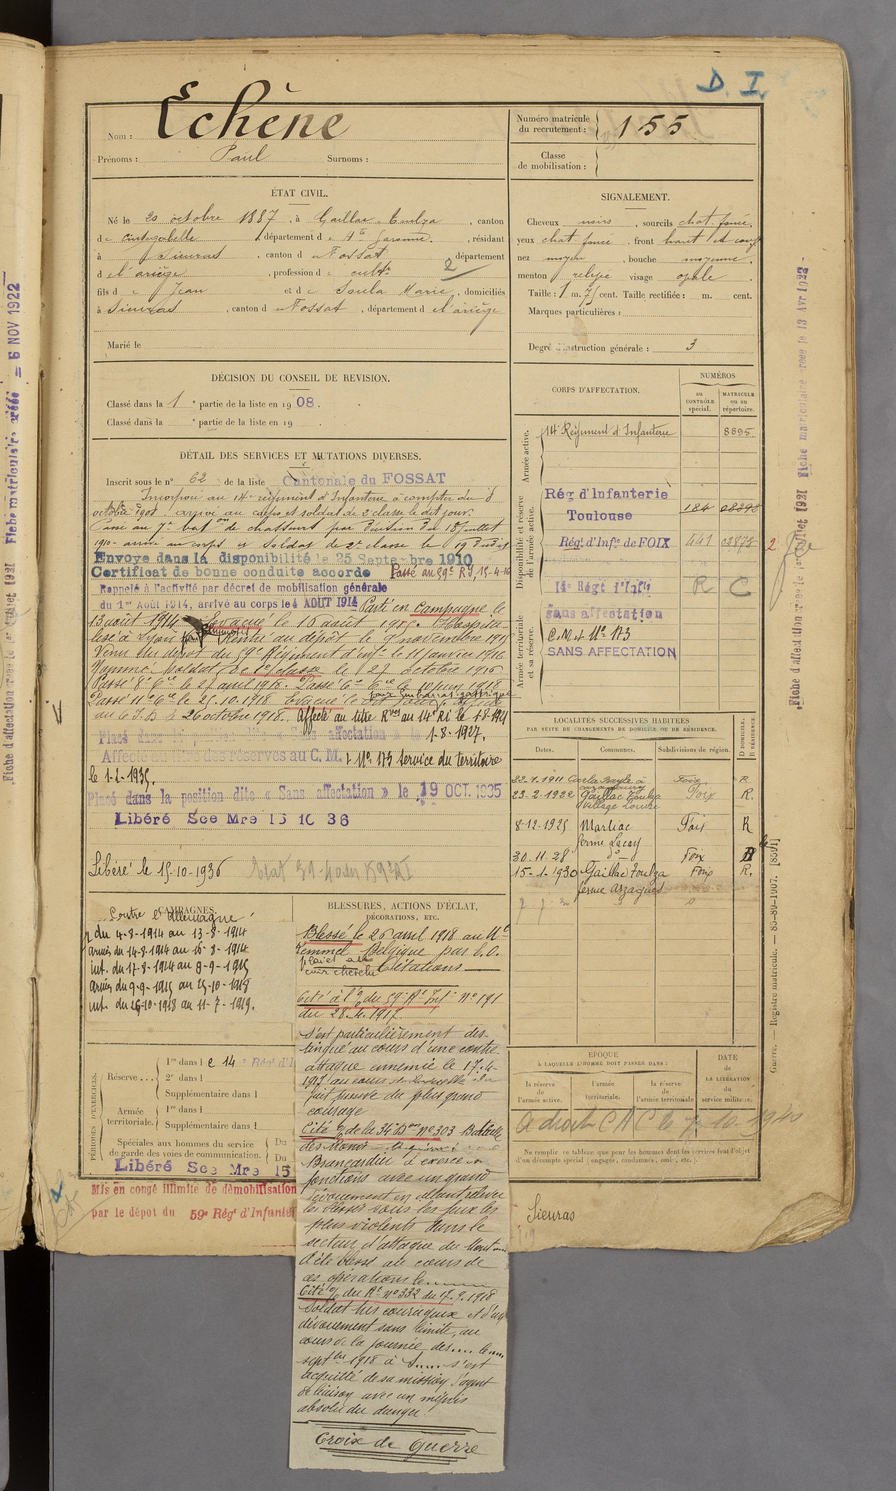 D. I.
Nom : Echène
Prénoms : Paul Surnoms :
Numéro matricule du recrutement : 155
Classe de mobilisation :
ÉTAT CIVIL.
Né le 20 octobre 1887, à Gaillac Toulza, canton
de Cintegabelle, département de Hte Garonne, résidant
à Sieuras, canton de Fossat, département
de l'ariège, profession de cultr
2
fils de Jean et de Soula Marie, domiciliés
à Sieuras, canton de Fossat, département de l'ariège
Marié le
SIGNALEMENT.
Cheveux noirs, sourcils chat. foncé,
yeux chat. foncé, front haut et
nez moyen, bouche moyenne,
menton relevé visage ovale
Taille : 1 m. 75 cent. Taille rectifiée : m. cent.
Marques particulières :
Degré d'instruction générale : 3
DÉCISION DU CONSEIL DE REVISION.
Classé dans la 1e partie de la liste en 1908.
Classé dans la e partie de la liste en 19
DÉTAIL DES SERVICES ET MUTATIONS DIVERSES.
Inscrit sous le n° 62 de la liste Cantonale du FOSSAT
Incorporé au 14e régiment d'Infanterie à compter du 8
octobre 1908. arrivé au corps et soldat de 2e classe le dit jour.
Passé au 7e bat on de chasseurs par décision du 18 juillet
1910 arrivé au corps et soldat de 2e classe le 19 dudit
Envoyé dans la disponibilité le 25 Septembre 1910
Certificat de bonne conduite accordé Passé au 59e RI 15-4-14
Rappelé à l'activité par décret de mobilisation générale
du 1er Août 1914, arrivé au corps le 4 AOUT 1914 Parti en campagne le
13 août 1914 Evacué le 16 août 1914. Hospita-
lisé à Lyon Rentré au dépôt le 9 novembre 1914
Venu du dépôt du 59e Régiment d'inf. le 11 janvier 1916
Nommé soldat de 1e classe le 27 octobre 1916
Passé 8e Cie le 27 avril 1918. Passé 6e Cie le 10 juin 1918
Passé 11e Cie le 25.10.1918 Evacué le dit jour pour embarras gastrique
26 octobre 1918. Affecté au titre Rves au 14e RI le
Placé dans la position sans affectation le 1-8-1927.
Affecté des réserves au C. M. t N° 173 service du territoire
le 1-2-1935.
Placé dans la position dite « Sans affectation » le 19 OCT. 1935
Libéré Sce Mre 15 10 36
Libéré le 15-10-1936
CORPS D'AFFECTATION.
NUMÉROS
AU CONTRÔLE spécial.
MATRICULE ou au répertoire.
Armée active.
14e Régiment d'Infanterie 8895
Disponibilité et réserve de l'armée active.
Rég d'Infanterie
Toulouse 184
Rég. d'Infie de FOIX 441
14e Régt d'Infie R C
Armée territoriale et sa réserve.
sans affectation
C.M.t N° 173
SANS AFFECTATION
LOCALITÉS SUCCESSIVES HABITÉES
PAR SUITE DE CHANGEMENTS DE DOMICILE OU DE RÉSIDENCE.
Dates. Communes. Subdivisions de région. D DOMICILE. R RÉSIDENCE.
22-1-1911 Carla Bayle Foix R.
23-2-1922 Gaillac Toulza Foix R.
8-12-1925 Marliac Foix R
ferme Lacoy
30.11.28 d° Foix
15-1-1930 Gaillac Toulza Foix R.
ferme Arzagues
CAMPAGNES.
Contre l'Allemagne :
du 4-8-1914 au 13-8-1914
armées du 14-8-1914 au 16-8-1914
int. du 17-8-1914 au 8-9-1915
armées du 9-9-1915 au 25-10-1918
int. du 26-10-1918 au 11-7-1919.
BLESSURES, ACTIONS D'ÉCLAT,
DÉCORATIONS, ETC.
Blessé le 26 avril 1918 au Mt
Kemmel Belgique par E.O.
plaie au
cuir chevelu Citations
Cité à l'o/ du 59e Rt Inf. N° 191
du 28.4.1917
s'est particulièrement dis-
tingué au cours d'une contre
attaque ennemie le 17.4.
1917 au cours de laquelle il a
fait preuve du plus grand
courage
Cité o/ de la 34e Don n° 303 Bataille
des Monts
Brancardier a exercé ses
fonctions avec un grand
dévouement en allant relever
les blessés sous les feux les
plus violents dans le
secteur d'attaque du Mont
A été blessé au cours de
ces opérations le......
Cité o/ du Rt N° 332 du 17.9.1918
Soldat très courageux et d'un
dévouement sans limite, au
cours de la journée des.... le....
septbre 1918 à S..... s'est
acquitté de sa mission d'agent
de liaison avec un mépris
absolu du danger.
Croix de Guerre
PÉRIODES D'EXERCICES.
Réserve...
1re dans le 14e Rég d'I
2e dans l
Supplémentaire dans l
Armée territoriale.
1re dans l
Supplémentaire dans l
Spéciales aux hommes du service
de garde des voies de communication. Du Du
Libéré Sce Mre 15
Mis en congé illimité de démobilisation
par le dépôt du 59e Rég' d'Infanterie
ÉPOQUE
À LAQUELLE L'HOMME DOIT PASSER DANS :
la réserve de l'armée active.
l'armée territoriale.
la réserve de l'armée territoriale
DATE DE LA LIBÉRATION du service militaire.
A droit CAC le 7.10.1940
Ne remplir ce tableau que pour les hommes dont les services font l'objet
d'un décompte spécial (engagés, condamnés, omis, etc.).
Sieuras
Guerre. — Registre matricule. — 85-89-1907. [8391]
Fiche d'affectation créée le Juillet 1921 Fiche matriculaire créée le = 6 NOV 1922
Fiche d'affectation créée le Juillet 1921 Fiche matriculaire créée le 13 Avr 1922